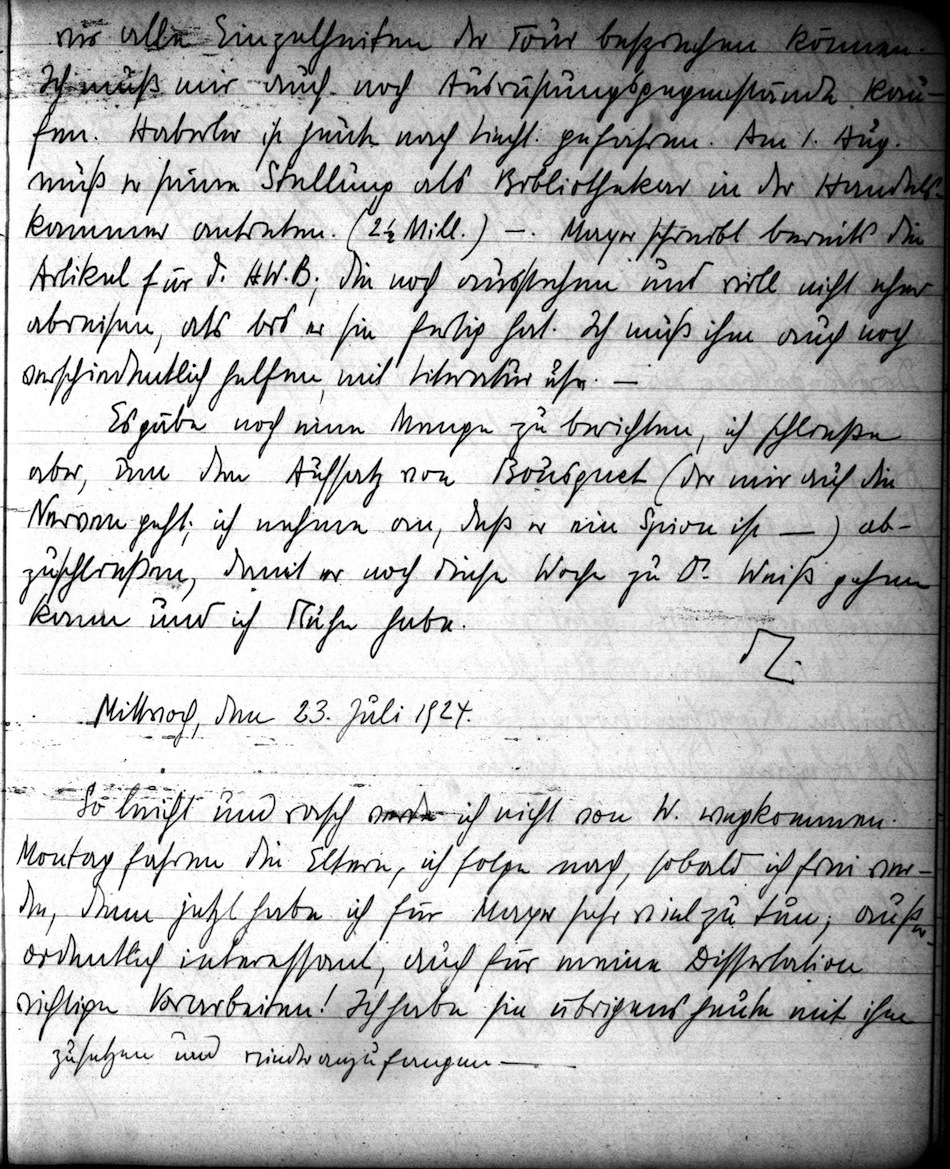 wir alle Einzelheiten der Tour besprechen können.
Ich muß mir auch noch Ausrüstungsgegenstände kau-
fen. Haberler ist heute nach Liecht. gefahren. Am 1. Aug.
muß er seine Stellung als Bibliothekar in der Handels-
kammer antreten. (2½ Mill.) —. Mayer schreibt bereits die
Artikel für d. HW.B., die noch ausstehen und will nicht eher
abreisen, als bis er sie fertig hat. Ich muß ihm auch noch
verschiedentlich helfen, mit Literatur usw. —
Es gäbe noch eine Menge zu berichten, ich schließe
aber, um den Aufsatz von Bousquet (der mir auf die
Nerven geht; ich nehme an, daß er ein Spion ist —) ab-
zuschließen, damit er noch diese Woche zu Dr. Weiß gehen
kann und ich Ruhe habe.
Mittwoch, den 23. Juli 1924.
So leicht und rasch werde ich nicht von W. wegkommen.
Montag fahren die Eltern, ich folge nach, sobald ich frei wer-
de, denn jetzt habe ich für Mayer sehr viel zu tun; außer-
ordentlich interessant, auch für meine Dissertation
wichtige Vorarbeiten! Ich habe sie übrigens heute mit ihm